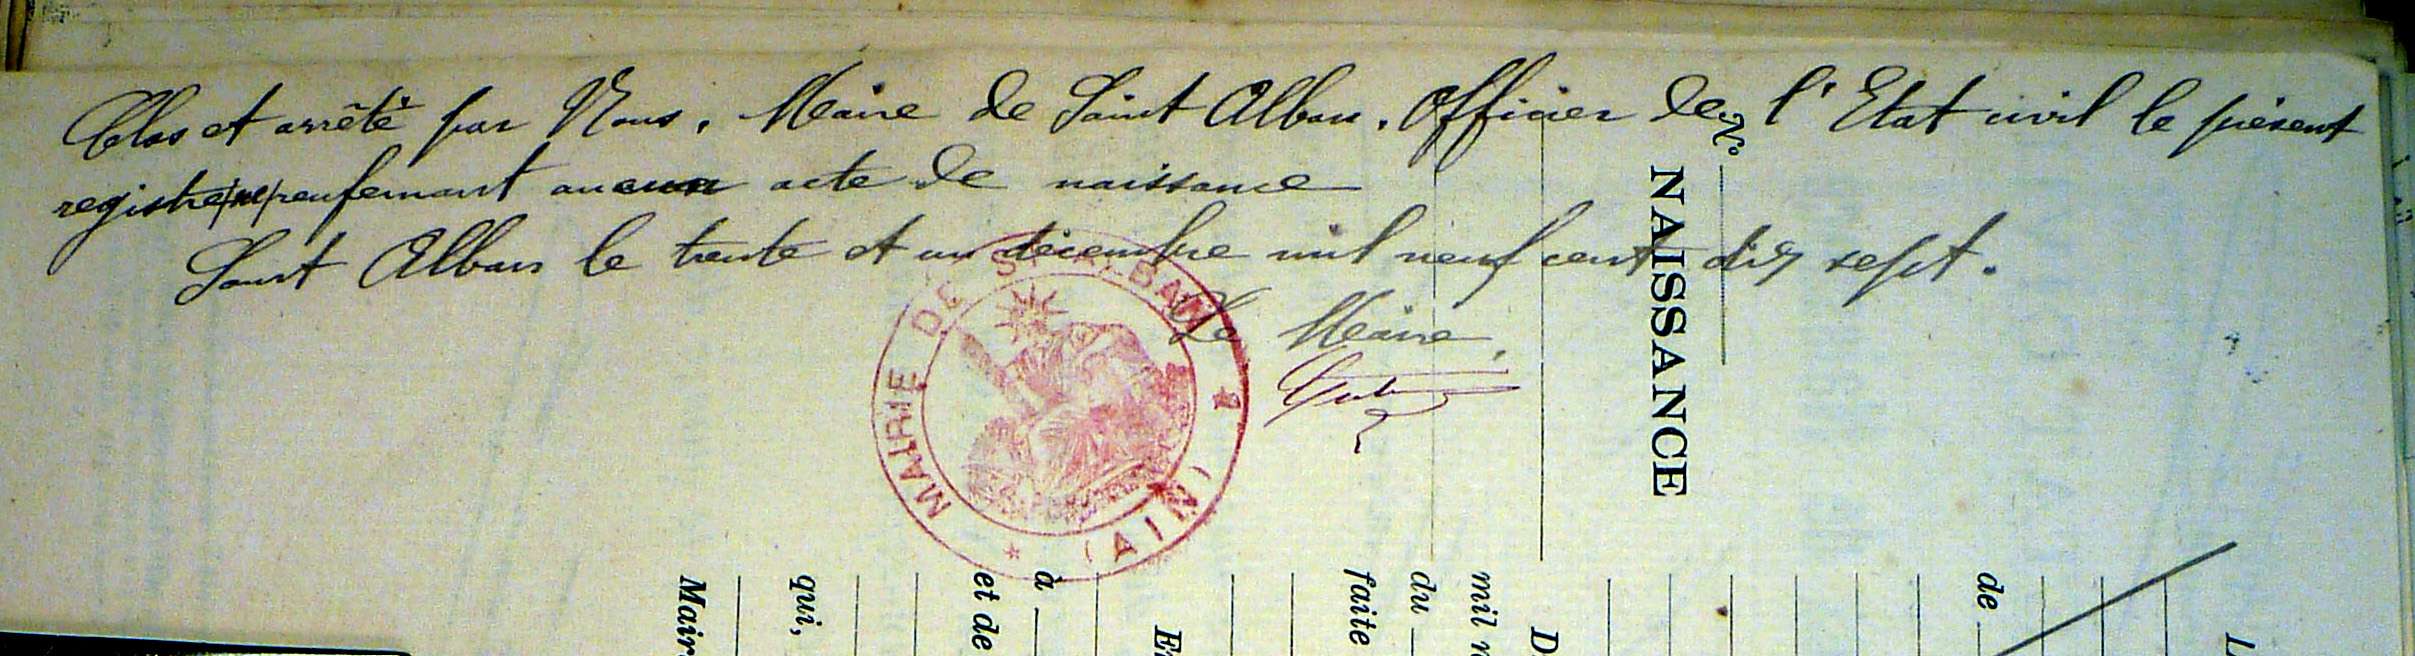 Clos et arrêté par Nous, Maire de Saint Alban, Officier de l'Etat civil le présent
registre ne renfermant aucun acte de naissance
Saint Alban le trente et un décembre mil neuf cent dix sept.
Le Maire,
MAIRIE DE ST ALBAN
(AIN)
N°
NAISSANCE
de
D
mil n
du
faite
E
à
et de
qui,
Mair
L